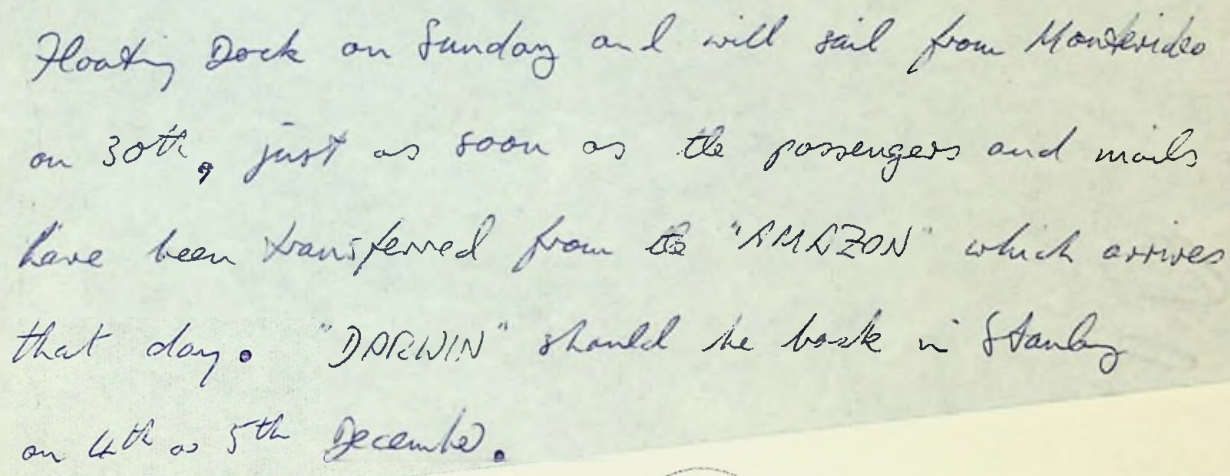 Floating Dock on Sunday and will sail from Montevideo
on 30th, just as soon as the passengers and mails
have been transferred from the "AMAZON" which arrives
that day. "DARWIN" should be back in Stanley
on 4th or 5th December.